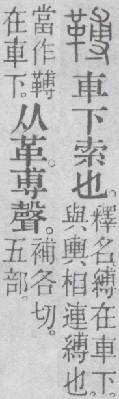 𩌏車下索也。釋名。縛在車下。
與輿相連縛也。
當作𩌏
在車下。从革。尃聲。補各切。
五部。